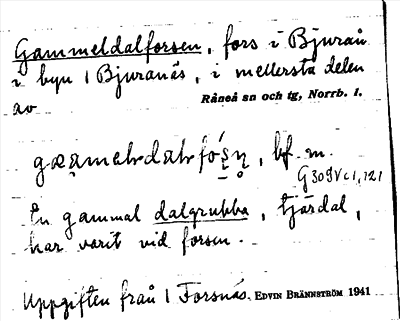 Gammeldalforsen, fors i Bjuraå
i byn 1 Bjuranäs, i mellersta delen
av
Råneå sn och tg, Norrb. l.
bf. m.
G309Vc1,121
En gammal dalgrubba, tjärdal,
har varit vid forsen.
Uppgiften från 1 Forsnäs. EDVIN BRÄNNSTRÖM 1941